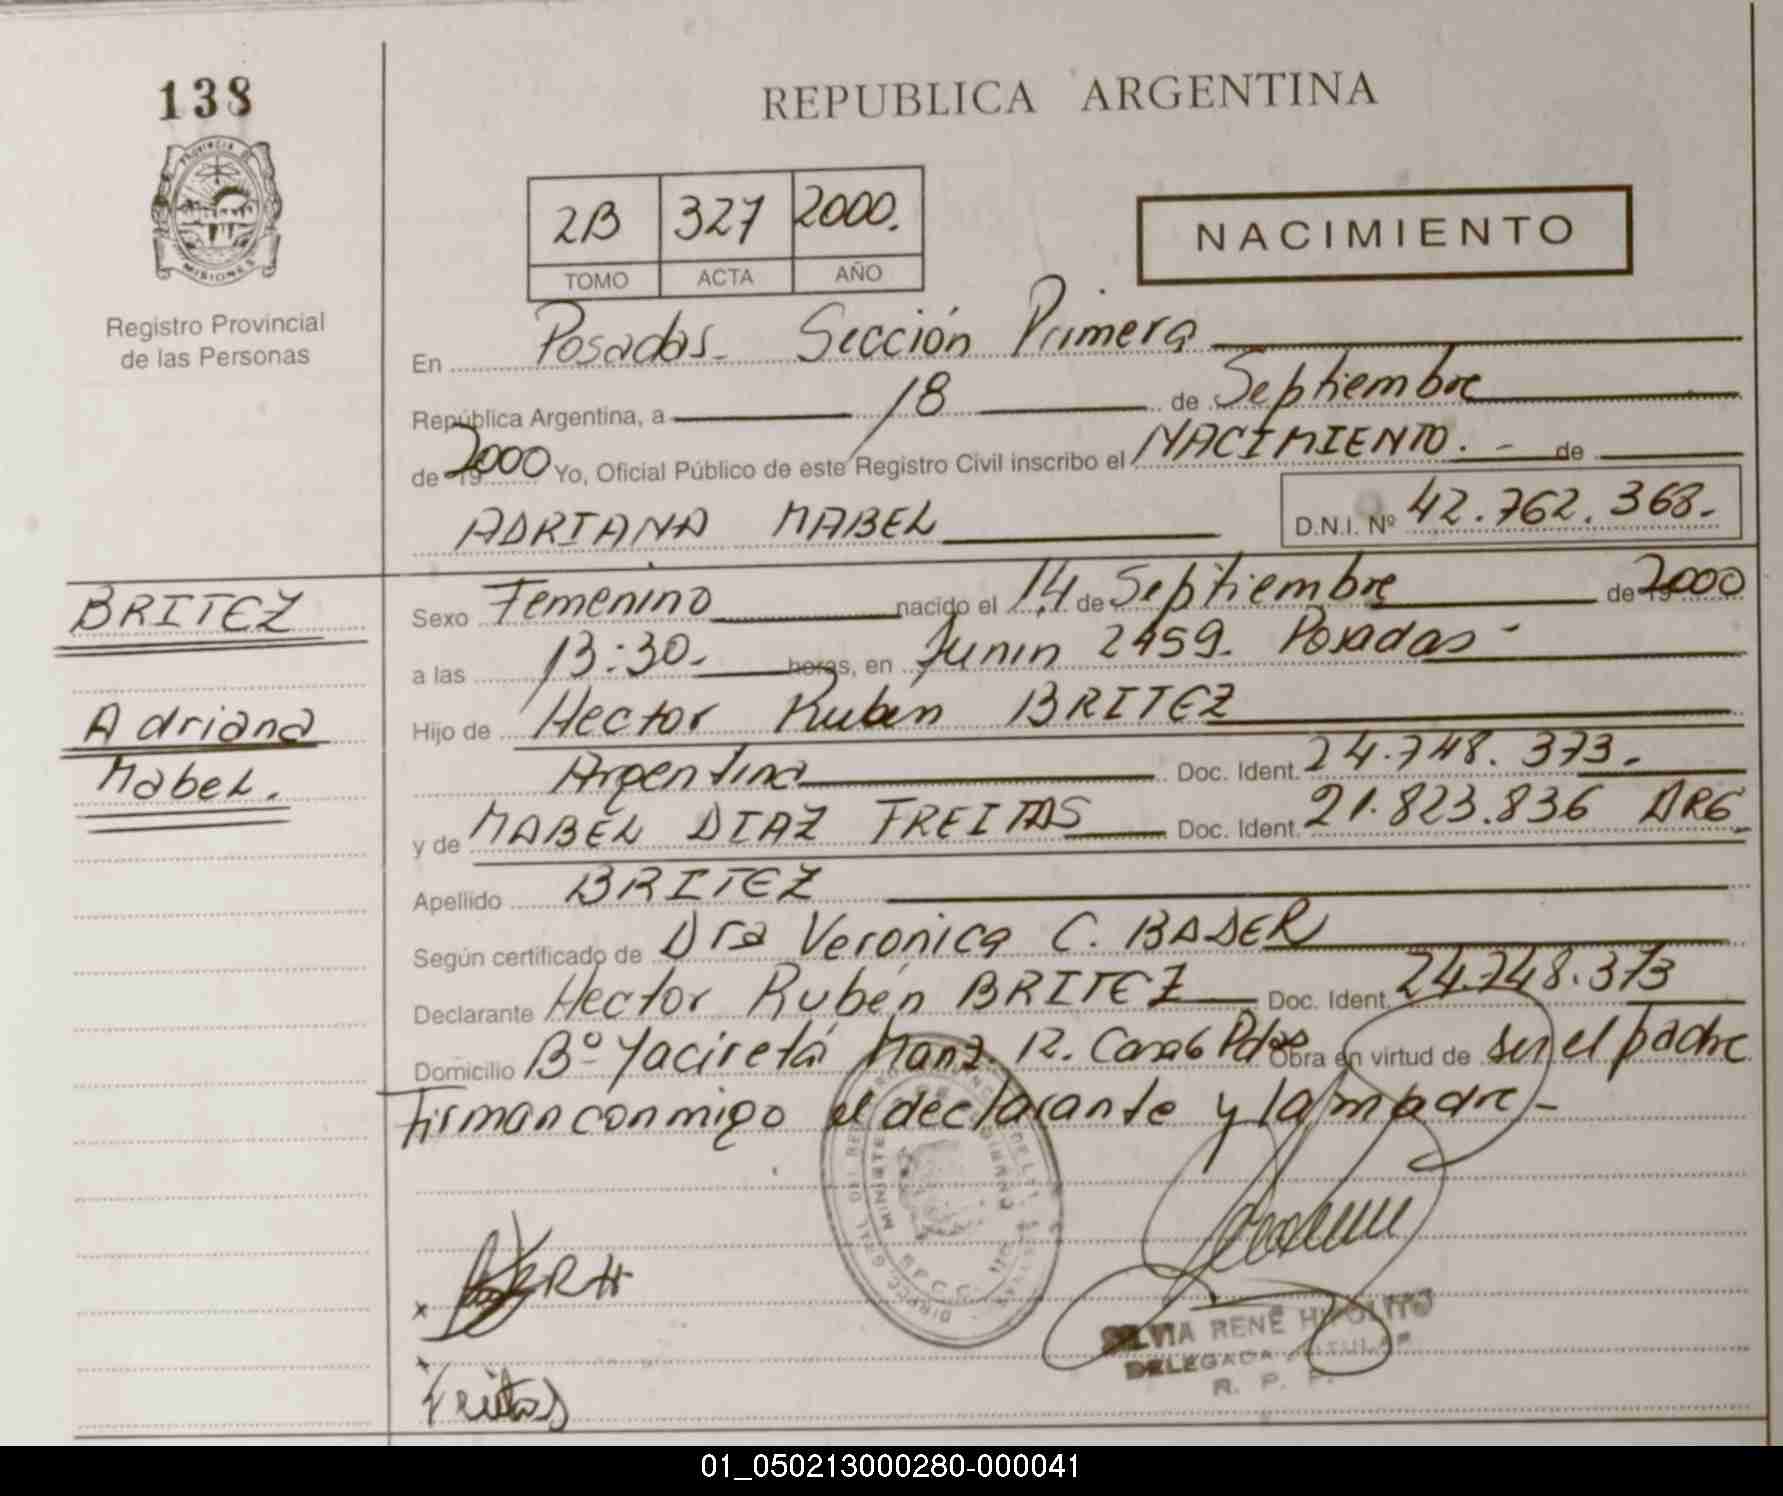 138
PROVINCIA DE
MISIONES
Registro Provincial
de las Personas
REPUBLICA ARGENTINA
2B 327 2000.
TOMO ACTA AÑO
NACIMIENTO
En Posadas Sección Primera
República Argentina, a 18 de Septiembre
de 2000 Yo, Oficial Público de este Registro Civil inscribo el NACIMIENTO. - de
ADRIANA MABEL D.N.I. Nº 42.762.368.-
BRITEZ
Adriana
Mabel.
Sexo Femenino nacido el 14 de Septiembre de 2000
a las 13:30.- horas, en Junin 2459. Posadas -
Hijo de Hector Ruben BRITEZ
Argentina Doc. Ident. 24.748.373.
y de MABEL DIAZ FREITAS Doc. Ident. 21.823.836 ARG
Apellido BRITEZ
Según certificado de Dra Veronica C. BADER
Declarante Hector Rubén BRITEZ Doc. Ident. 24.748.373
Domicilio Bº Yaciretá Manz. 12. Casa 6 Pdas Obra en virtud de ser el padre
Firman conmigo el declarante y la madre -
Freitas
SILVIA RENÉ HIPOLITO
DELEGADA TITULAR
R. P. P.
01_050213000280-000041